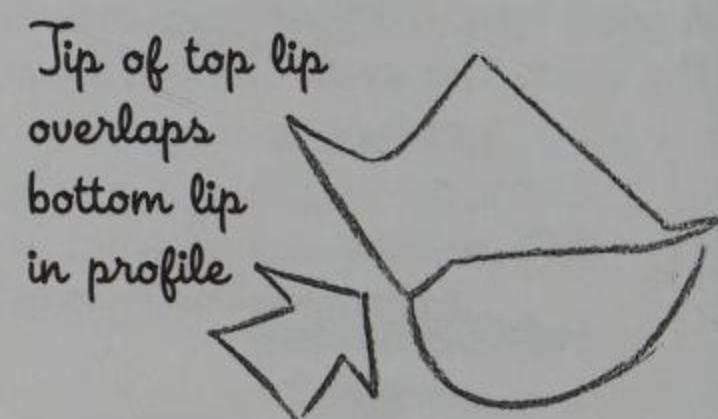 Tip of top lip
overlaps
bottom lip
in profile